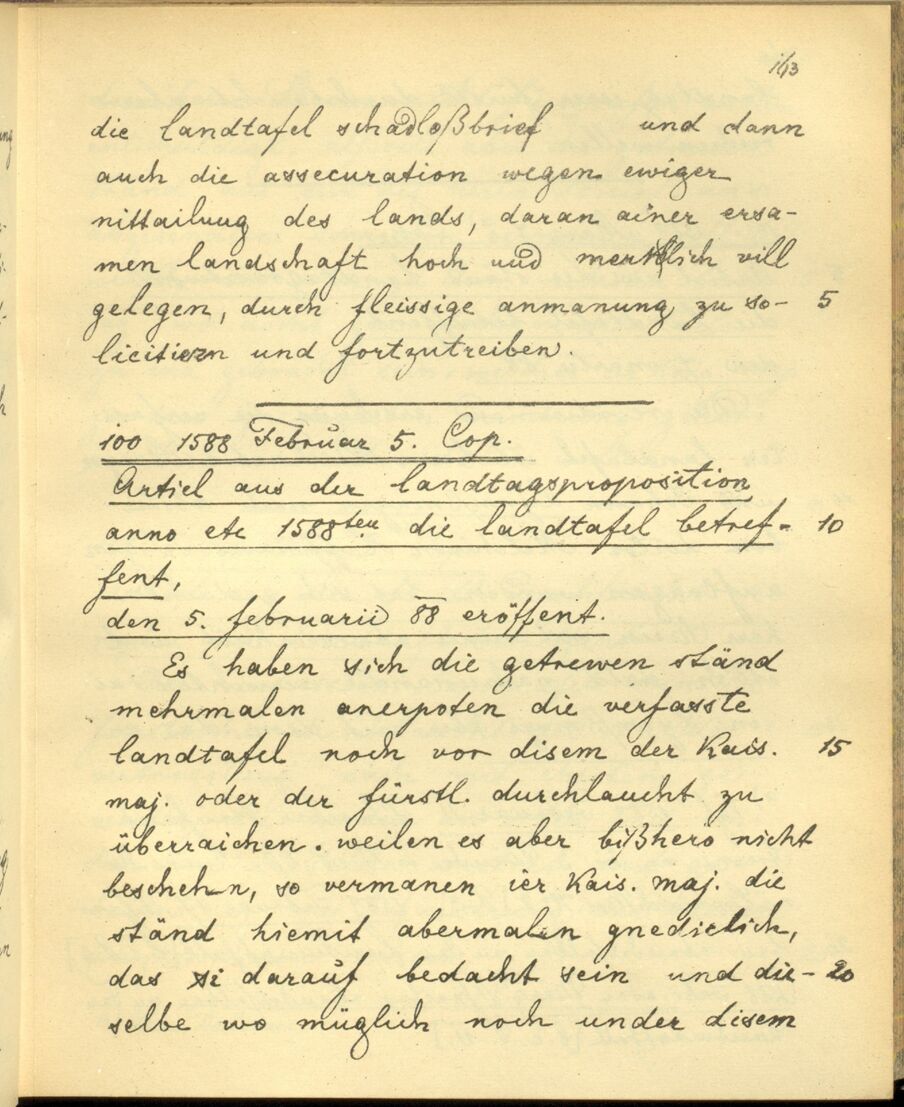 113
die landtafel schadloßbrief und dann
auch die assecuration wegen ewiger
nittailung des lands, daran ainer ersa-
men landschaft hoch und merklich vill
gelegen, durch fleissige anmanung zu so- 5
licitiern und fortzutreiben.
100 1588 Februar 5. Cop.
Articl aus der landtagsproposition
anno etc 1588ten die landtafel betref- 10
fent,
den 5. februarii 88 eröffent.
Es haben sich die getrewen ständ
mehrmalen anerpoten die verfasste
landtafel noch vor disem der Kais. 15
maj. oder der fürstl. durchlaucht zu
überraichen. weilen es aber bißhero nicht
beschehn, so vermanen ier Kais. maj. die
ständ hiemit abermalen gnediclich,
das si darauf bedacht sein und die- 20
selbe wo müglich noch under disem